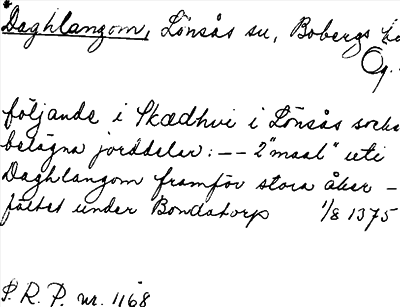 *Daghlangom, Lönsås sn, Bobergs
Ög.
följande i Skædhvi i Lönsås
belägna jorddelar: -- 2 "maal" uti
Daghlangom framför stora åker-
fältet under Bondatorp 1/8 1375
S. R. P. nr. 1168